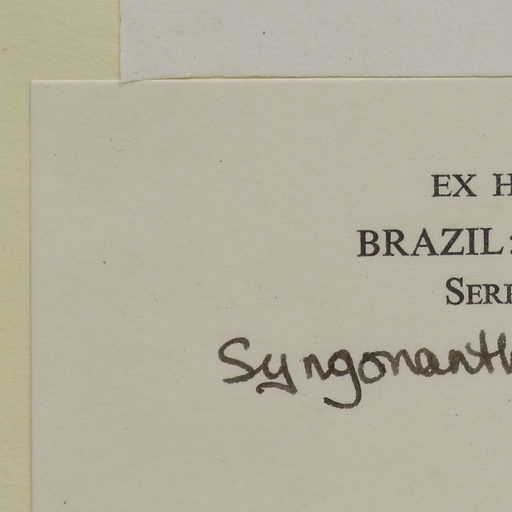 EX H
BRAZIL:
SERR
Syngonanth